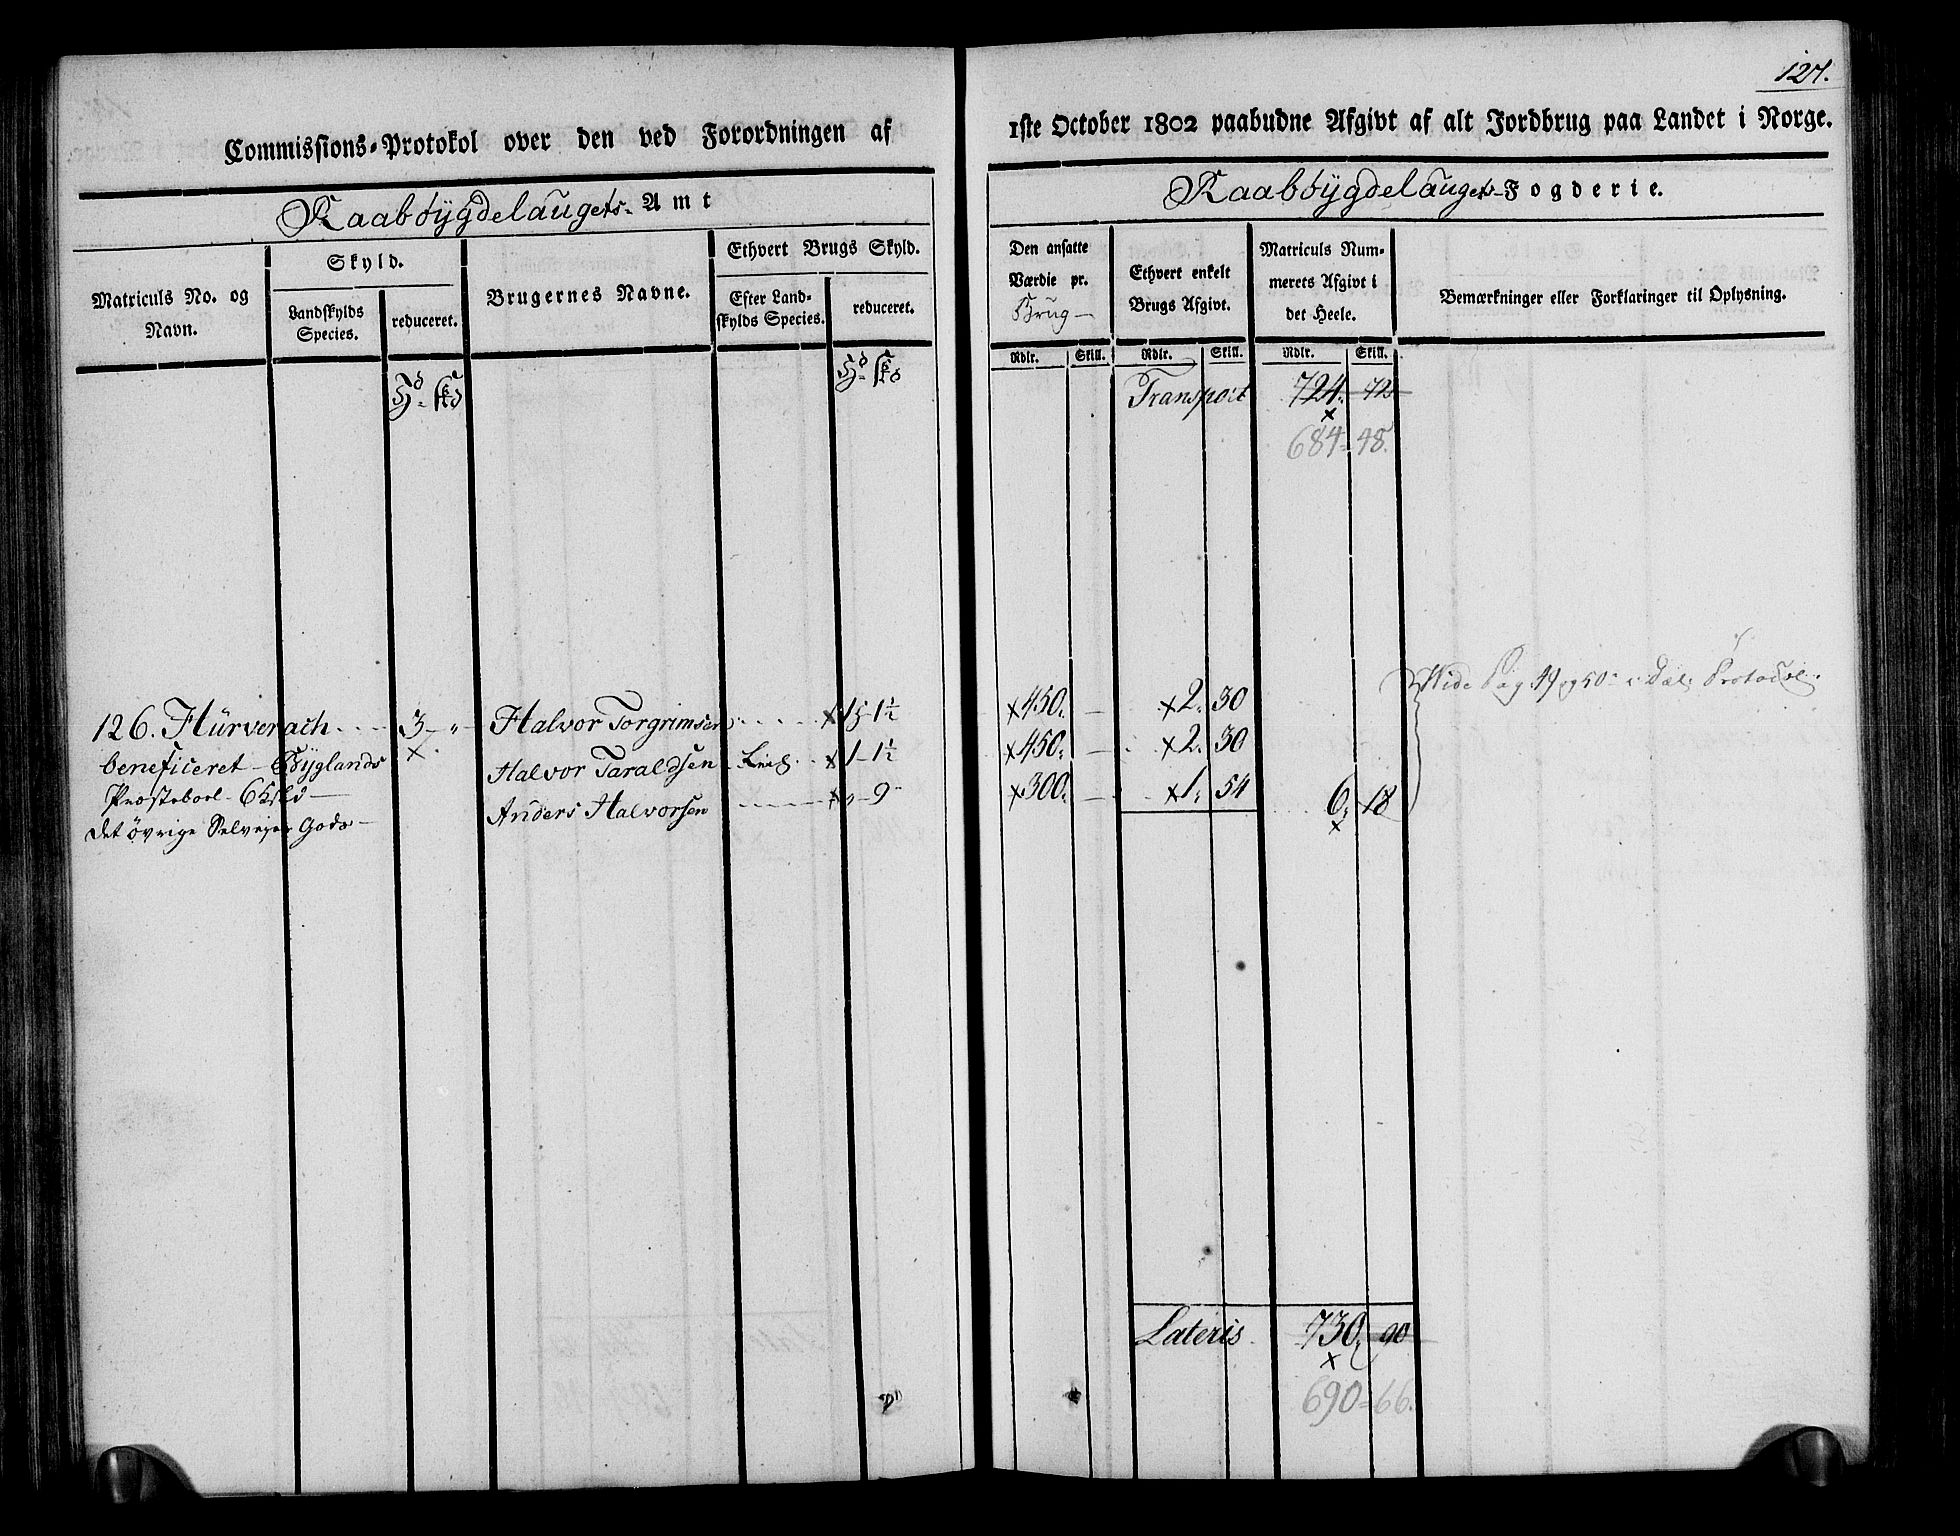 127.
Commissions-Protokol over den ved Forordningen af 1ste October 1802 paabudne Afgivt af alt Jordbrug paa Landet i Norge.
Raabøygdelaugets- Amt
Raabøygdelaugets- Fogderie.
Matriculs No. og Navn.
Skyld.
Landskylds Species.
reduceret.
Brugernes Navne.
Ethvert Brugs Skyld.
Efter Landskylds Species.
reduceret.
Den ansatte Værdie pr. Brug
Ethvert enkelt Brugs Afgivt.
Matriculs Nummerets Afgivt i det Heele.
Bemærkninger eller Forklaringer til Oplysning.
Rdlr. Skill. Rdlr. Skill. Rdlr. Skill.
Transport 724. 72
684 - 48.
126. Hürverach 3 - " - Halvor Torgrimsen 1 - 1½ 450. - 2. 30
beneficeret - Byglands Halvor Taraldsen 1 - 1½ 450. - 2. 30
Præsteboel - 6 Anders Halvorsen - 9 300. - 1. 54 6. 18
det øvrige Selveier Gods
Vide Pag 49 og 50 i Protocol.
Lateris 730. 90
690 - 66.